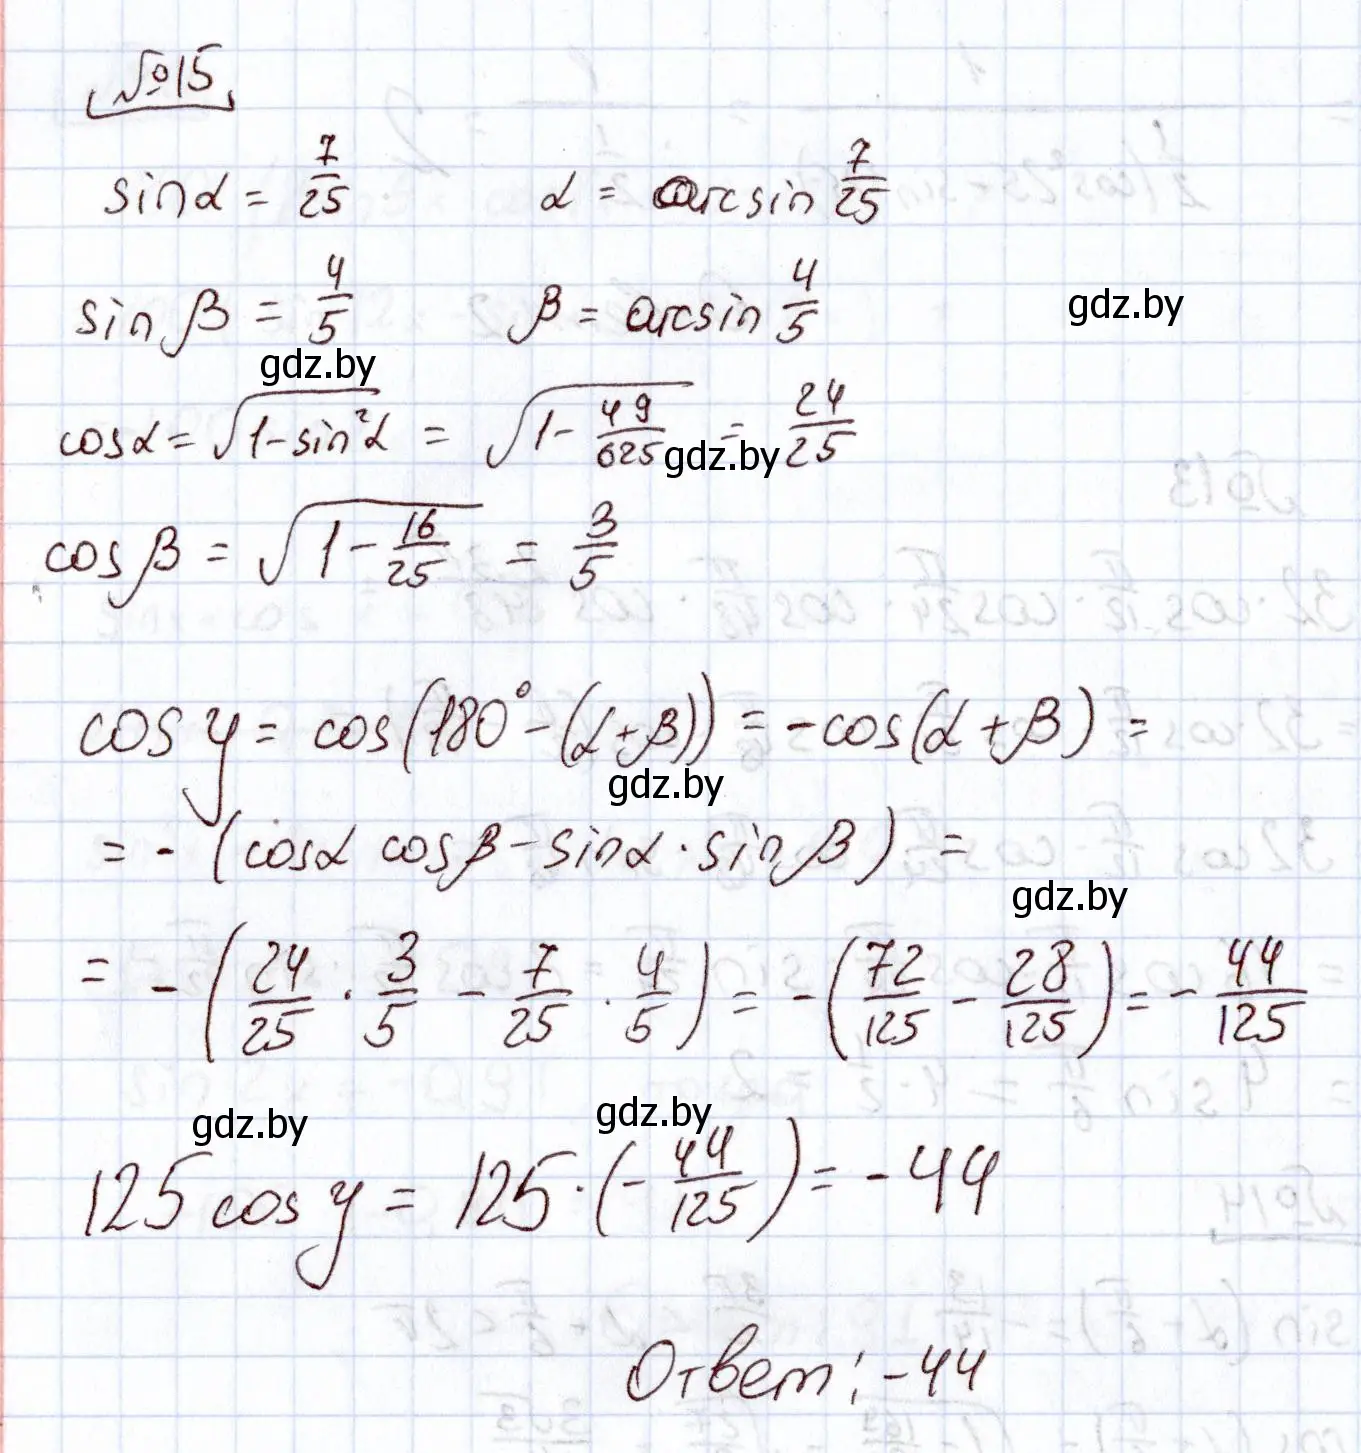 №15
sinα = 7/25    α = arcsin 7/25
sin β = 4/5    β = arcsin 4/5
gdz.by
gdz.by
cosα = √(1-sin²α) = √(1 - 49/625) = 24/25
gdz.by
cos β = √(1 - 16/25) = 3/5
cos y = cos(180° - (α+β)) = -cos(α+β) =
gdz.by
= - (cosα cosβ - sinα · sin β) =
gdz.by
= - (24/25 · 3/5 - 7/25 · 4/5) = -(72/125 - 28/125) = - 44/125
gdz.by
gdz.by
125 cos y = 125 · (- 44/125) = - 44
Ответ: -44